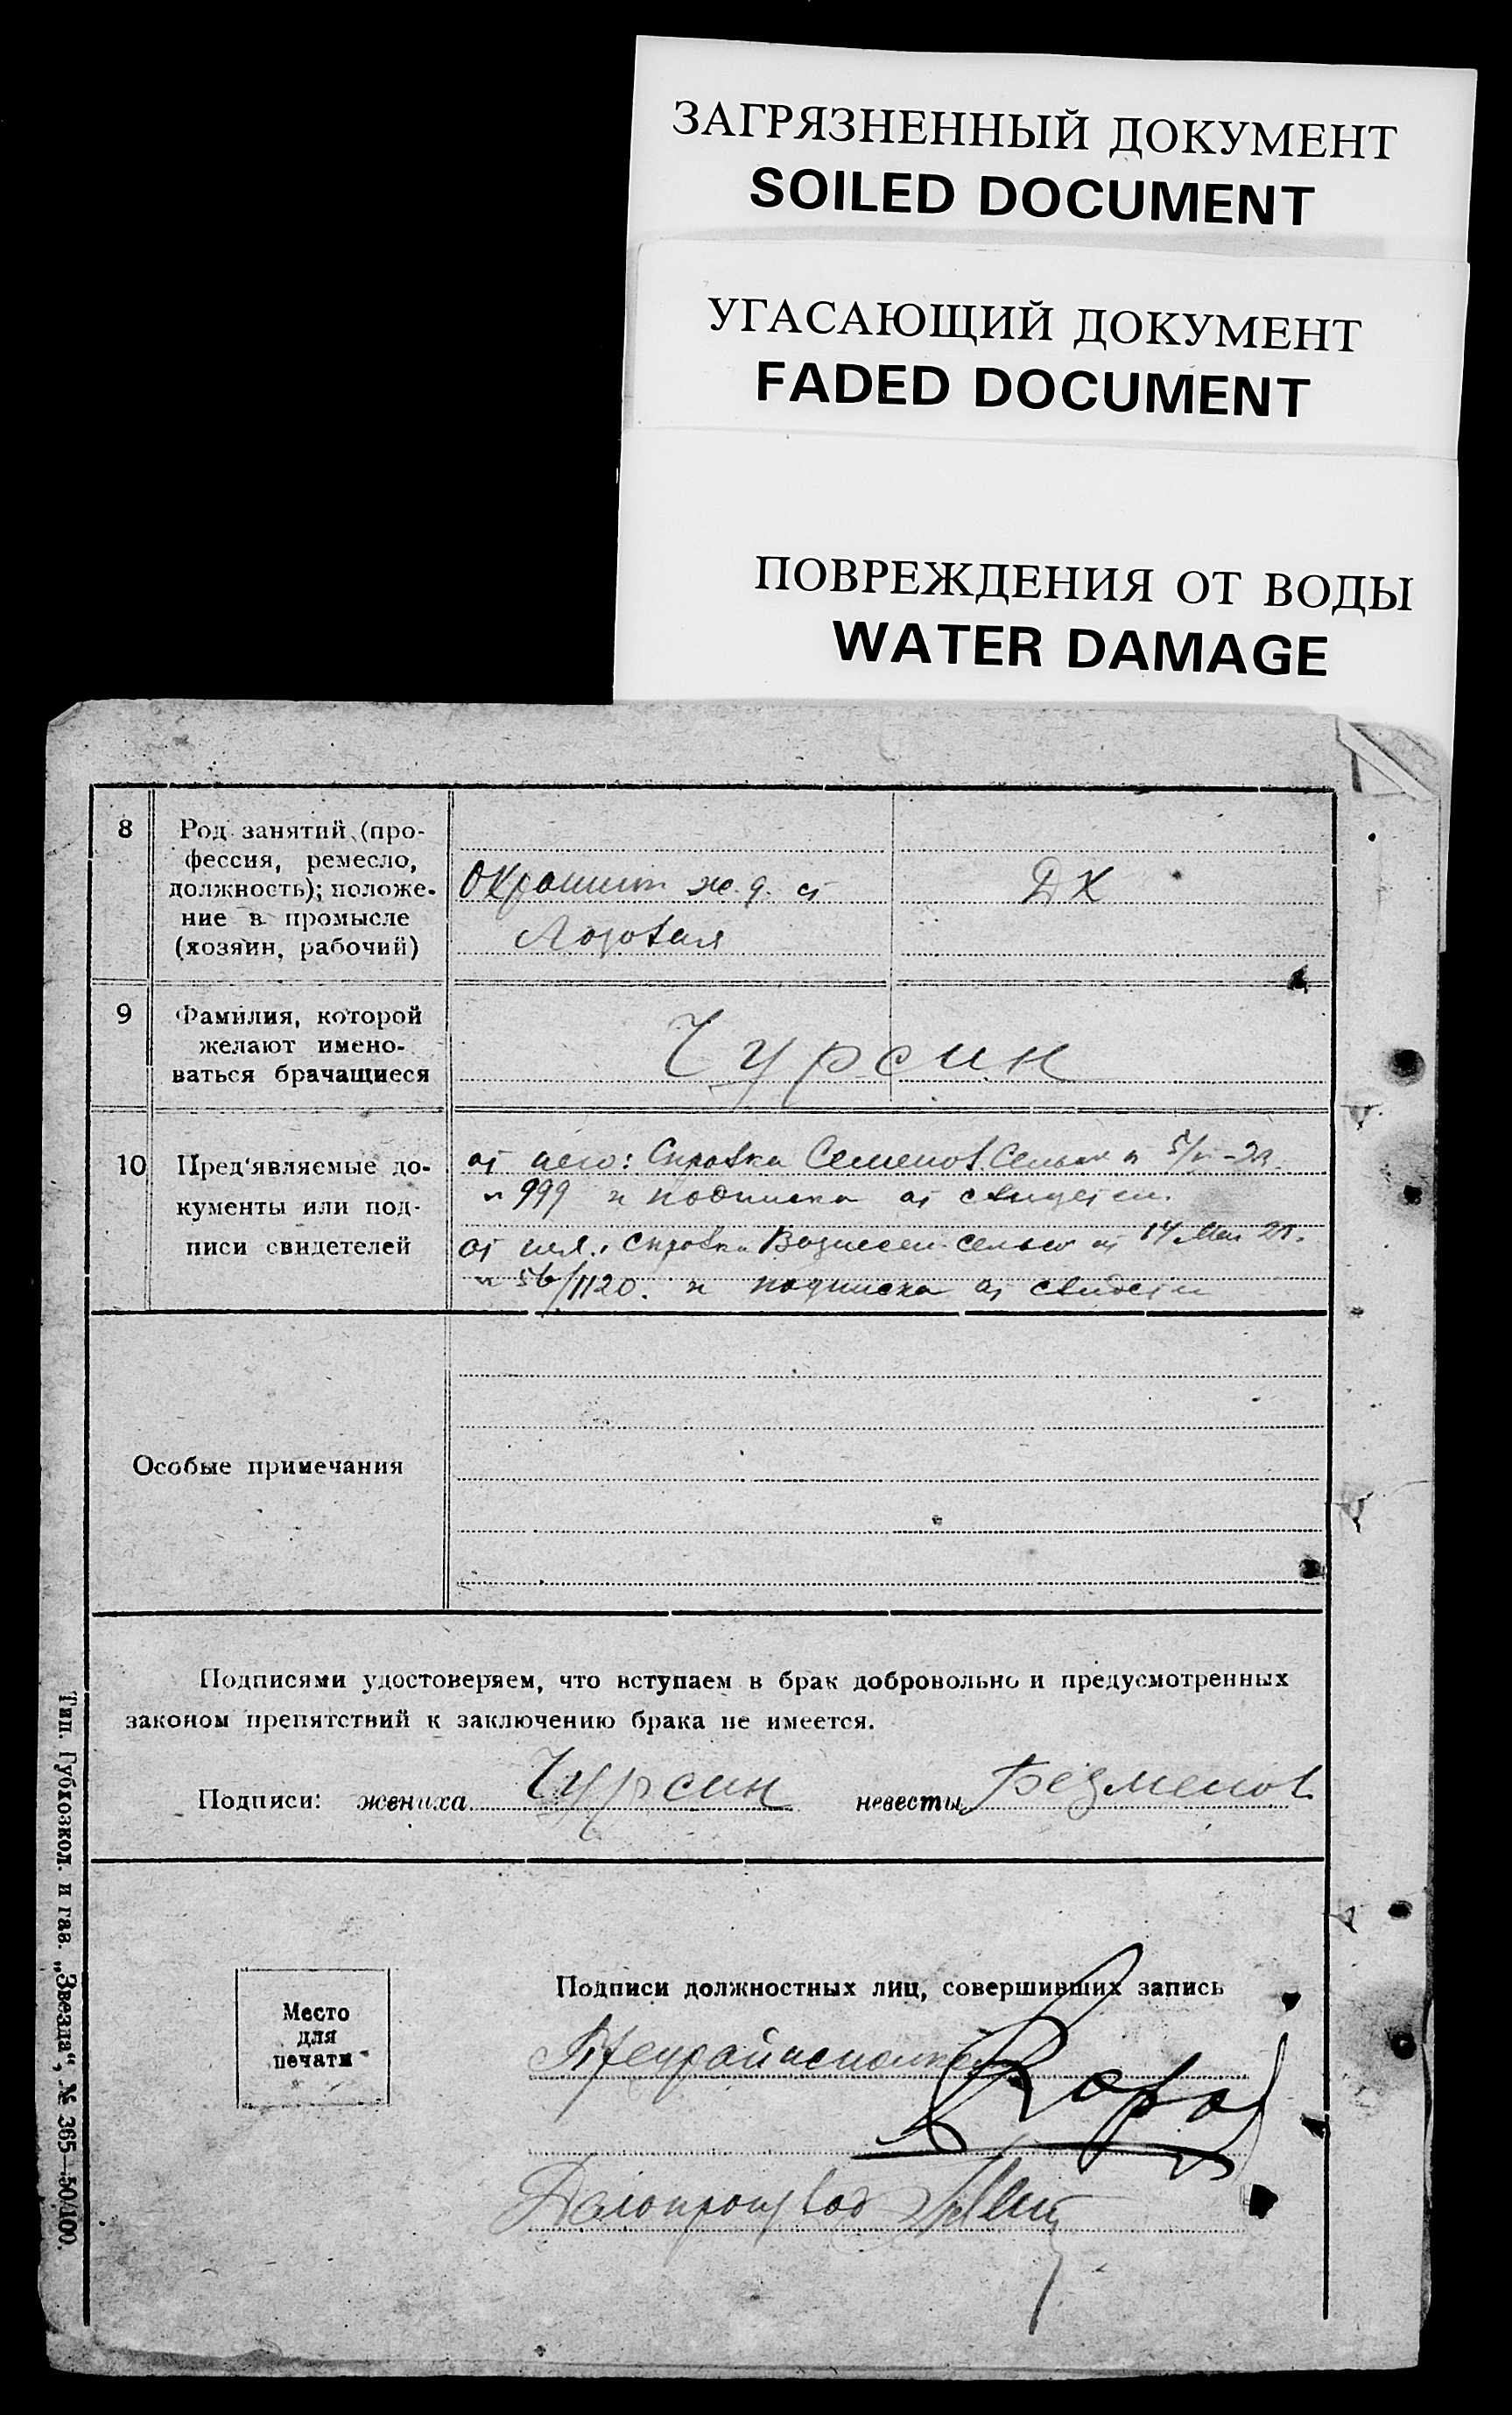 ЗАГРЯЗНЕННЫЙ ДОКУМЕНТ
SOILED DOCUMENT
УГАСАЮЩИЙ ДОКУМЕНТ
FADED DOCUMENT
ПОВРЕЖДЕНИЯ ОТ ВОДЫ
WATER DAMAGE
8
Род занятий (про-
фессия, ремесло,
должность); положе-
ние в промысле
(хозяин, рабочий)
ж.д. ст
Лозовая
ДХ
9
Фамилия, которой
желают имено-
ваться брачащиеся
Чурсин
10
Пред'являемые до-
кументы или под-
писи свидетелей
от него: Справка Семенов. Сельс
№ 999 и подписка от свидетел.
от нея: справка Вознесен. сельс от 14 Мая
№ 56/1120. и подписка от свидетел
Особые примечания
Подписями удостоверяем, что вступаем в брак добровольно и предусмотренных
законом препятствий к заключению брака не имеется.
Подписи: жениха Чурсин невесты Безменов
Место
для
печати
Подписи должностных лиц, совершивших запись
Предрайисполкома
Делопроизвод
Тип. Губкозкол. и газ. „Звезда“, № 365—50/100.